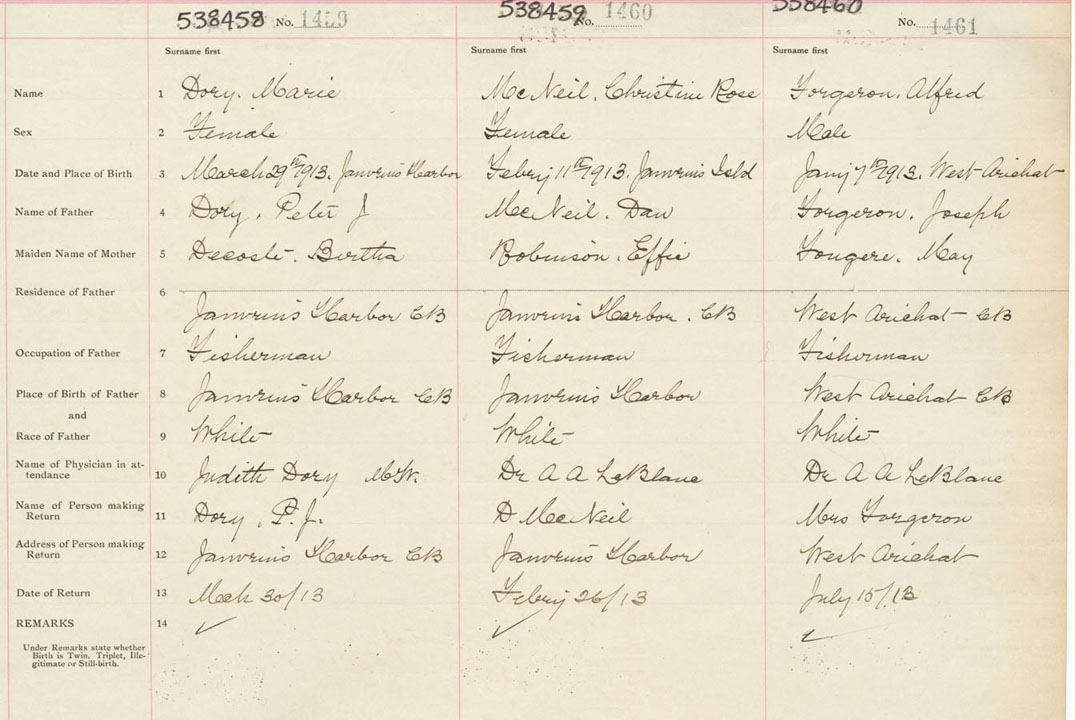 538458 No. 1459 538459 No. 1460 538460 No. 1461
Surname first Surname first Surname first
Name 1 Dory. Marie McNeil. Christine Rose Forgeron. Alfred
Sex 2 Female Female Male
Date and Place of Birth 3 March 29th 1913. Janvrins Harbor Febry 11th 1913. Janvrins Isld Jany 7th 1913. West Arichat
Name of Father 4 Dory. Peter J MacNeil. Dan Forgeron. Joseph
Maiden Name of Mother 5 Decoste. Bertha Robinson. Effie Fougere. May
Residence of Father 6
Janvrins Harbor CB Janvrins Harbor. CB West Arichat - CB
Occupation of Father 7 Fisherman Fisherman Fisherman
Place of Birth of Father 8 Janvrins Harbor CB Janvrins Harbor West Arichat CB
and
Race of Father 9 White White White
Name of Physician in at-
tendance 10 Judith Dory M.W. Dr A A LeBlanc Dr A A LeBlanc
Name of Person making
Return 11 Dory, P. J. D MacNeil Mrs Forgeron
Address of Person making
Return 12 Janvrins Harbor CB Janvrins Harbor West Arichat
Date of Return 13 Mch 30/13 Febry 26/13 July 15/13
REMARKS 14
Under Remarks state whether
Birth is Twin, Triplet, Ille-
gitimate or Still-birth.